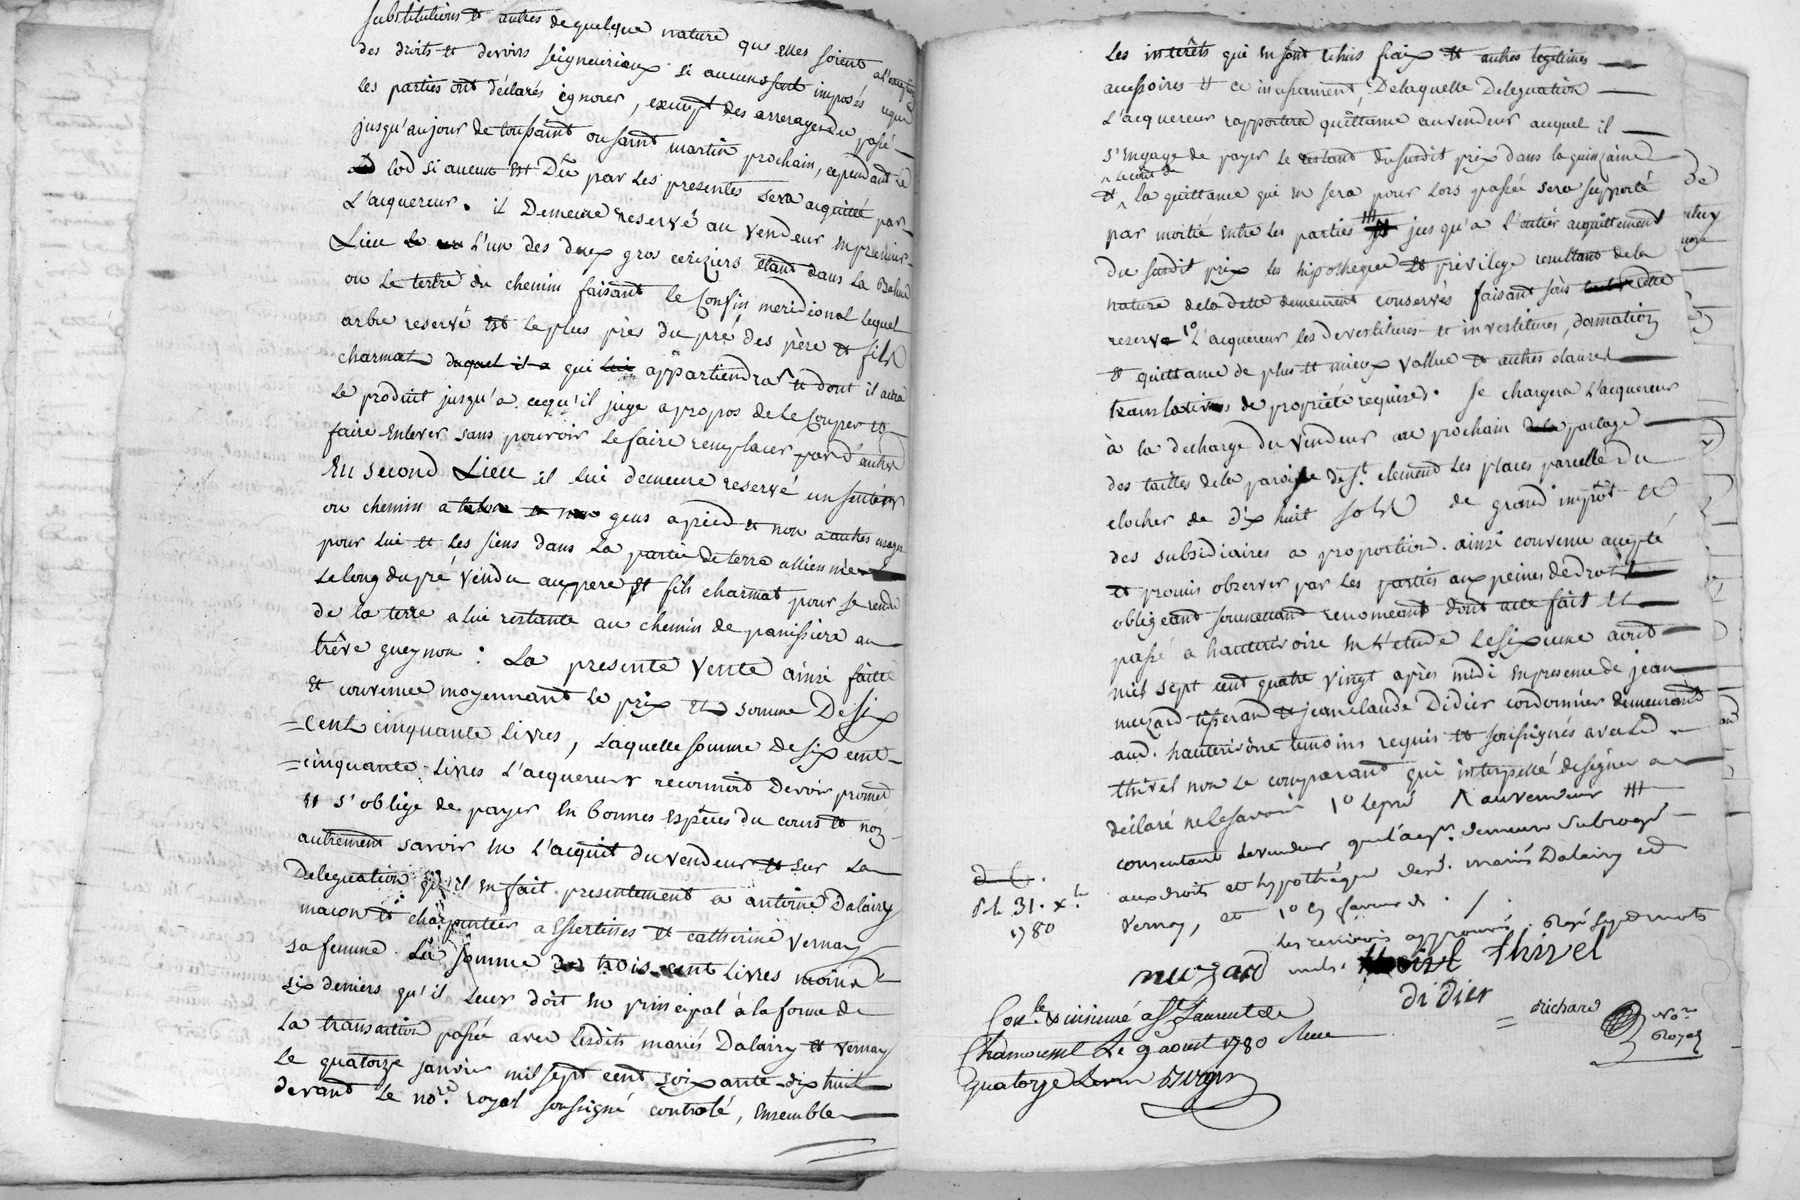 substitutions et autres de quelque nature que elles soient a l'exception
des droits et devoirs seigneuriaux si aucuns sont imposés ceque
les parties ont déclarés ignorer, except des arrerages du passé
jusqu'au jour de toussaint ou saint martin prochain, cependant le
lod si aucun est Dû par les presentes sera acquitté par
L'acquereur. il Demeure reservé au vendeur en premier
Lieu L'un des deux gros ceriziers étant dans la Balme
ou le tertre du chemin faisant le Confin meridional lequel
arbre reservé est le plus près du pré, des père et fils
charmat duquel il a qui lui appartiendra et dont il aura
le produit jusqu'a cequ'il juge apropos de le Couper et
faire enlever sans pouvoir le faire remplacer par d'autres
En second Lieu il lui demeure reservé un sentier
ou chemin a talon gens apied et non a autres usages
pour lui et les siens dans la partie de terre alliennée
le long du pré vendu aux pere et fils charmat pour se rendre
de la terre a lui restante au chemin de panissiere au
trève gueynon : La presente vente ainsi faite
et convenue moyennant le prix et somme De six
cent cinquante livres, laquelle somme de six cent
cinquante livres L'acquereur reconnoit devoir promet
et s'oblige de payer en bonnes especes du cours et non
autrement savoir en l'acquit du vendeur et sur la
Deleguation qu'il en fait presentement a antoine Dalairy
macon et charpentier a Essertines et catherine vernay
sa femme. La somme de trois cent livres moins
six deniers qu'il leur doit en principal à la forme de
la transaction passée avec lesdits mariés Dalairy et vernay
le quatorze janvier mil sept cent soixante dix huit
devant le nore. royal soussigné controlé, ensemble
les interêts qui en sont echus fraix et autres legitimes
accessoires et ce incessament, De laquelle Deleguation
L'acquereur rapportera quittance au vendeur auquel il
s'engage de payer le restant du susdit prix dans la quinzaine
et la quittance qui en sera pour lors passée sera supporté
par moitié entre les parties jusqu'a l'entier acquittement
du susdit prix les hipotheque et privilege resultant de la
nature de la dette demeurent conservés faisant sous cette
reserve 1o L'acquereur les devestitures et investitures, donnation
et quittance de plus et mieux vallue et autres clauses
translatives de proprieté requises. Se chargera L'acquereur
à la decharge du vendeur au prochain partage
des tailles de la paroisse de st. clement les places parcelle du
clocher de dix huit sols de grand impôt et
des subsidiaires a proportion. ainsi convenu accepté
et promis observer par les parties aux peines de droit
obligeant soumettant renonceant dont acte fait et
passé a hauterivoire en Etude le sixieme aout
mil sept cent quatre vingt après midi en presence de jean
muzard tisserand et jean claude Didier cordonnier demeurants
aud. hauterivoire temoins requis et soussignés avec led
thivel non le comparant qui interpellé de signer a
déclaré ne le savoir 1o lepré ^ au vendeur
consentant le vendeur que l'acqr. demeure subrogé
aux droits et hypothéque desd. mariés Dalairy et
vernay, et
les renvois approuvés. Rayé mots
nuls.
muzard
thivel
didier
Richard Nore Royal
31. Xbre
1780
Conlé & insinué a St Laurent de
Chamousset Le 9 aoust 1780 Reçu
quatorze livres